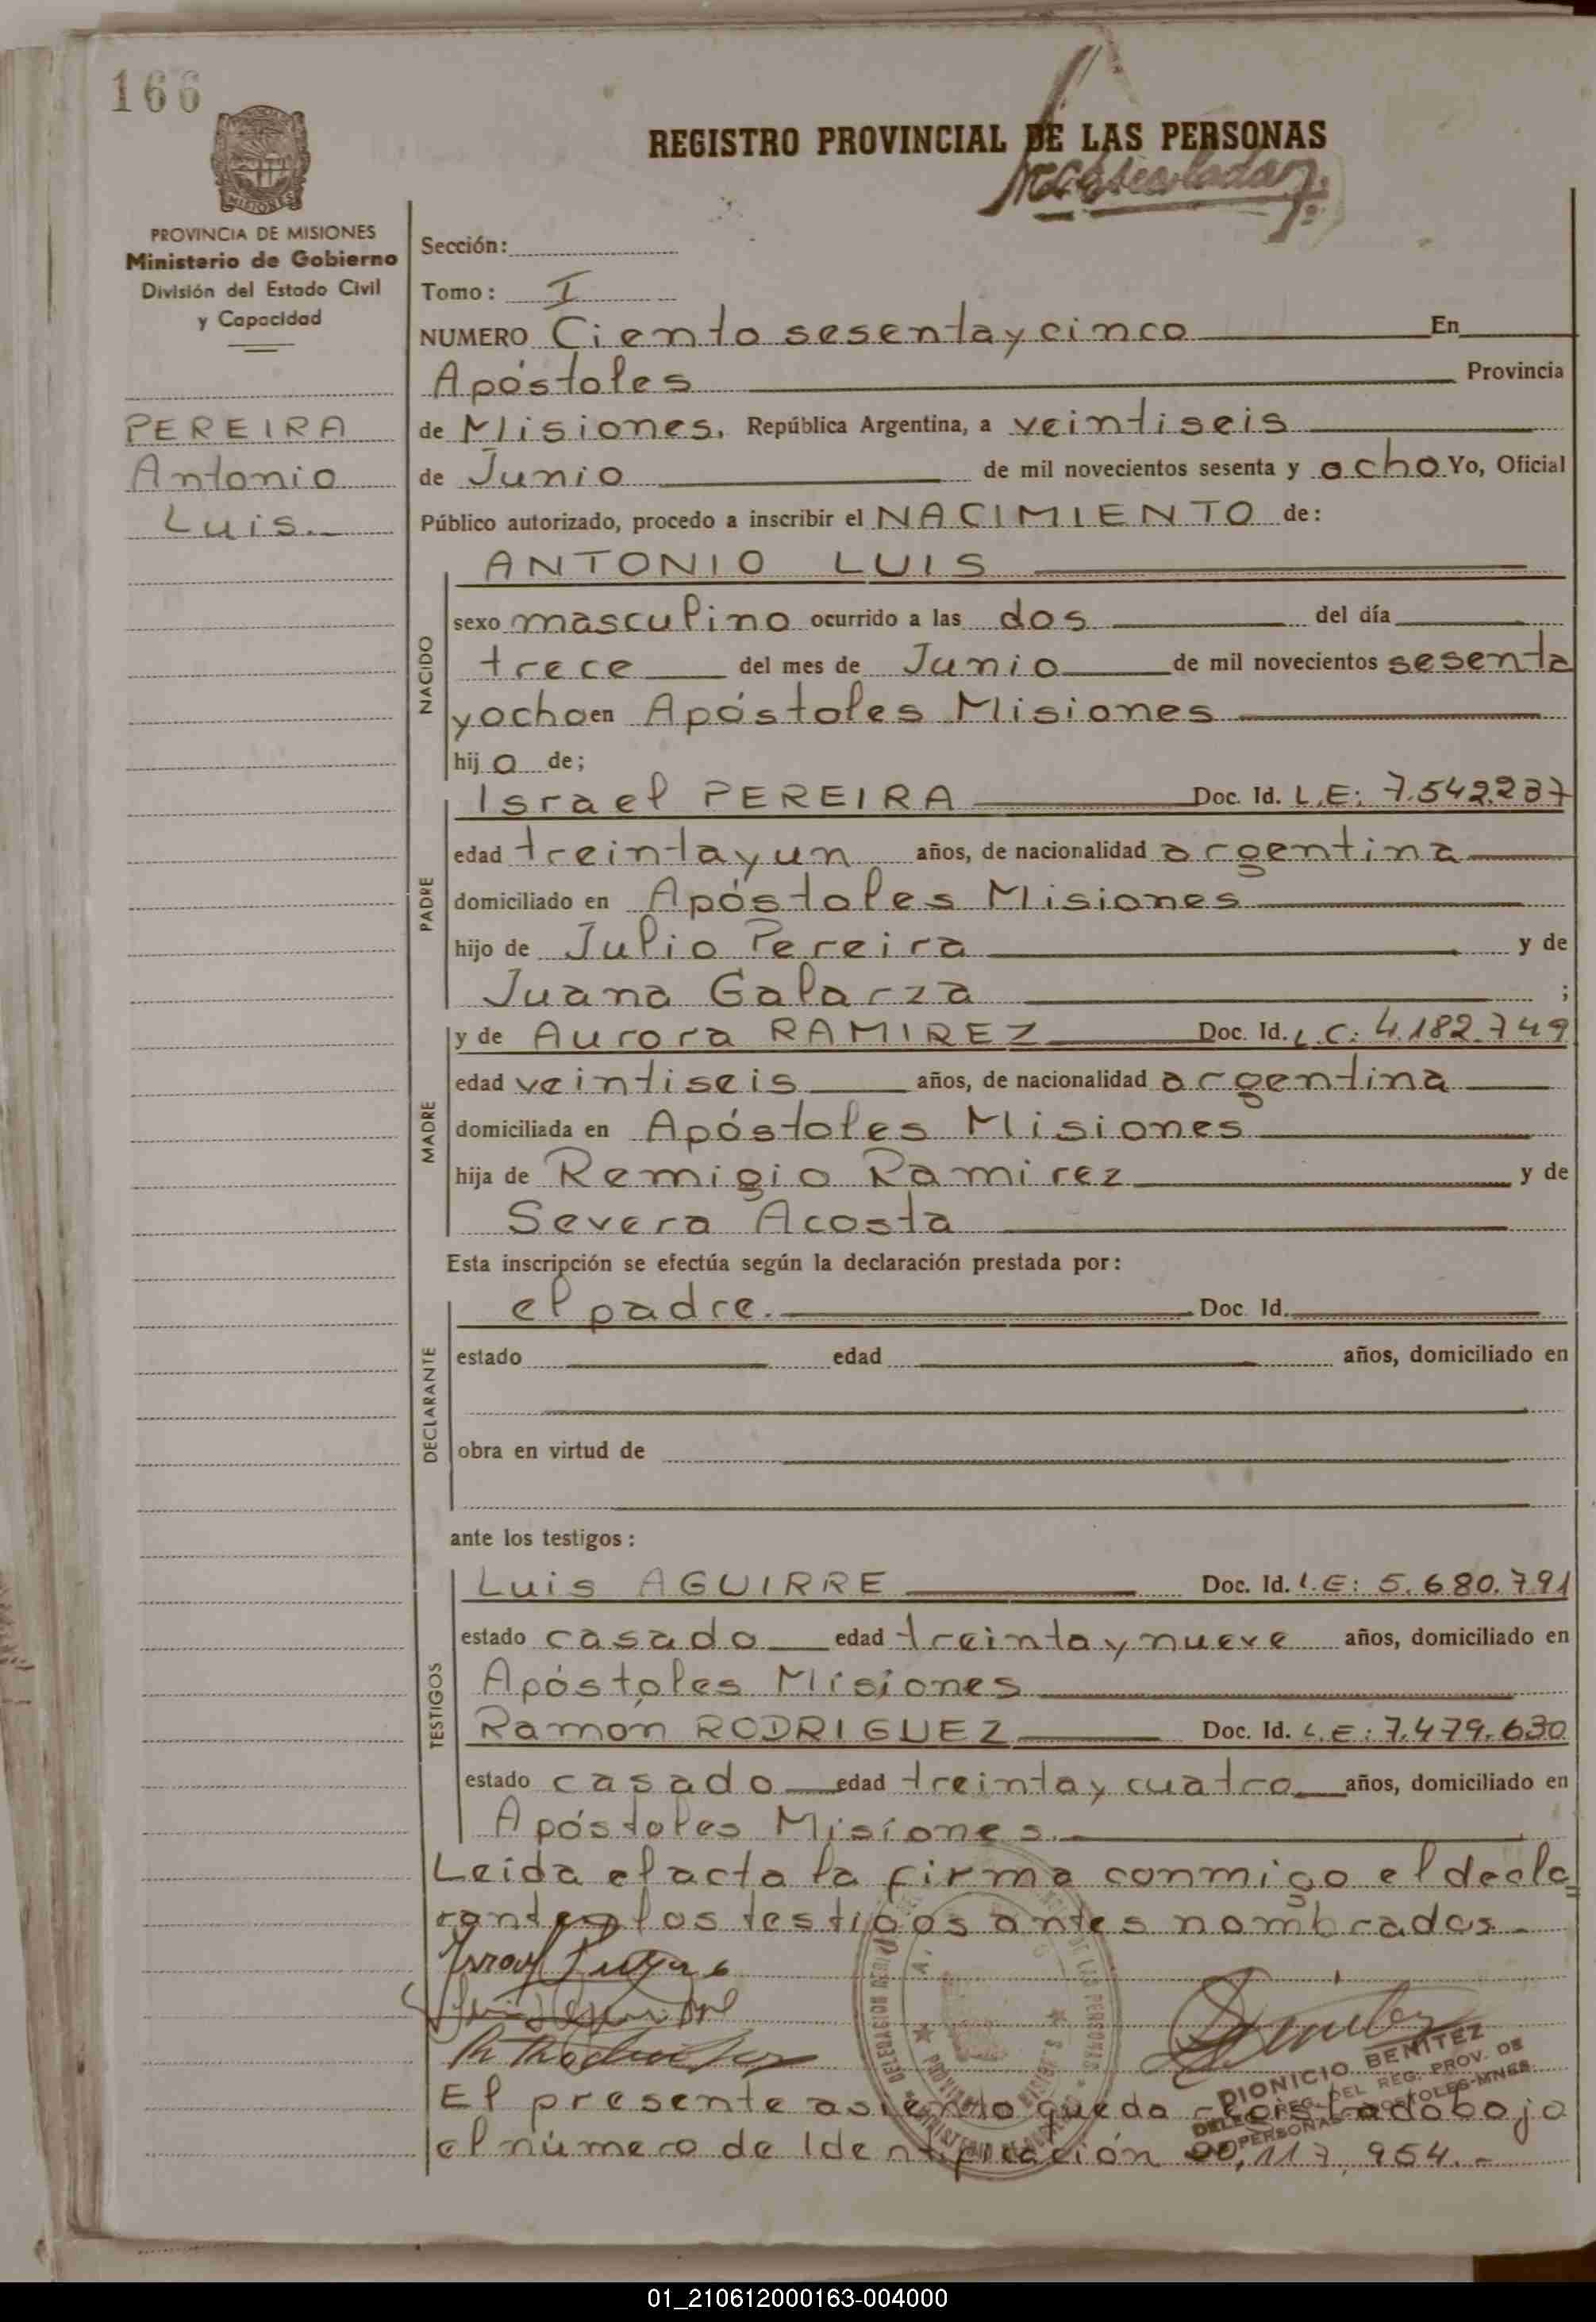 166
REGISTRO PROVINCIAL DE LAS PERSONAS
MISIONES
PROVINCIA DE MISIONES
Ministerio de Gobierno
División del Estado Civil
y Capacidad
PEREIRA
Antonio
Luis.-
Sección:
Tomo: I
NUMERO Ciento sesenta y cinco En
Apóstoles Provincia
de Misiones, República Argentina, a veintiseis
de Junio de mil novecientos sesenta y ocho Yo, Oficial
Público autorizado, procedo a inscribir el NACIMIENTO de:
ANTONIO LUIS
NACIDO
sexo masculino ocurrido a las dos del día
trece del mes de Junio de mil novecientos sesenta
y ocho en Apóstoles Misiones
hijo de;
PADRE
Israel PEREIRA Doc. Id. L.E: 7.542.237
edad treinta y un años, de nacionalidad argentina
domiciliado en Apóstoles Misiones
hijo de Julio Pereira y de
Juana Galarza ;
MADRE
y de Aurora RAMIREZ Doc. Id. L.C: 4.182.749
edad veintiseis años, de nacionalidad argentina
domiciliada en Apóstoles Misiones
hija de Remigio Ramirez y de
Severa Acosta
Esta inscripción se efectúa según la declaración prestada por:
DECLARANTE
el padre. Doc. Id.
estado edad años, domiciliado en
obra en virtud de
ante los testigos:
TESTIGOS
Luis AGUIRRE Doc. Id. L.E: 5.680.791
estado casado edad treinta y nueve años, domiciliado en
Apóstoles Misiones
Ramón RODRIGUEZ Doc. Id. L.E: 7.479.630
estado casado edad treinta y cuatro años, domiciliado en
Apóstoles Misiones.
Leida el acta la firma conmigo el decla=
rante y los testigos antes nombrados.-
DIONICIO BENITEZ
DELEG. REG. DEL REG. PROV. DE
LAS PERSONAS APOSTOLES-MNES
El presente asiento queda registrado bajo
el número de Identificación 20,117,954.-
01_210612000163-004000